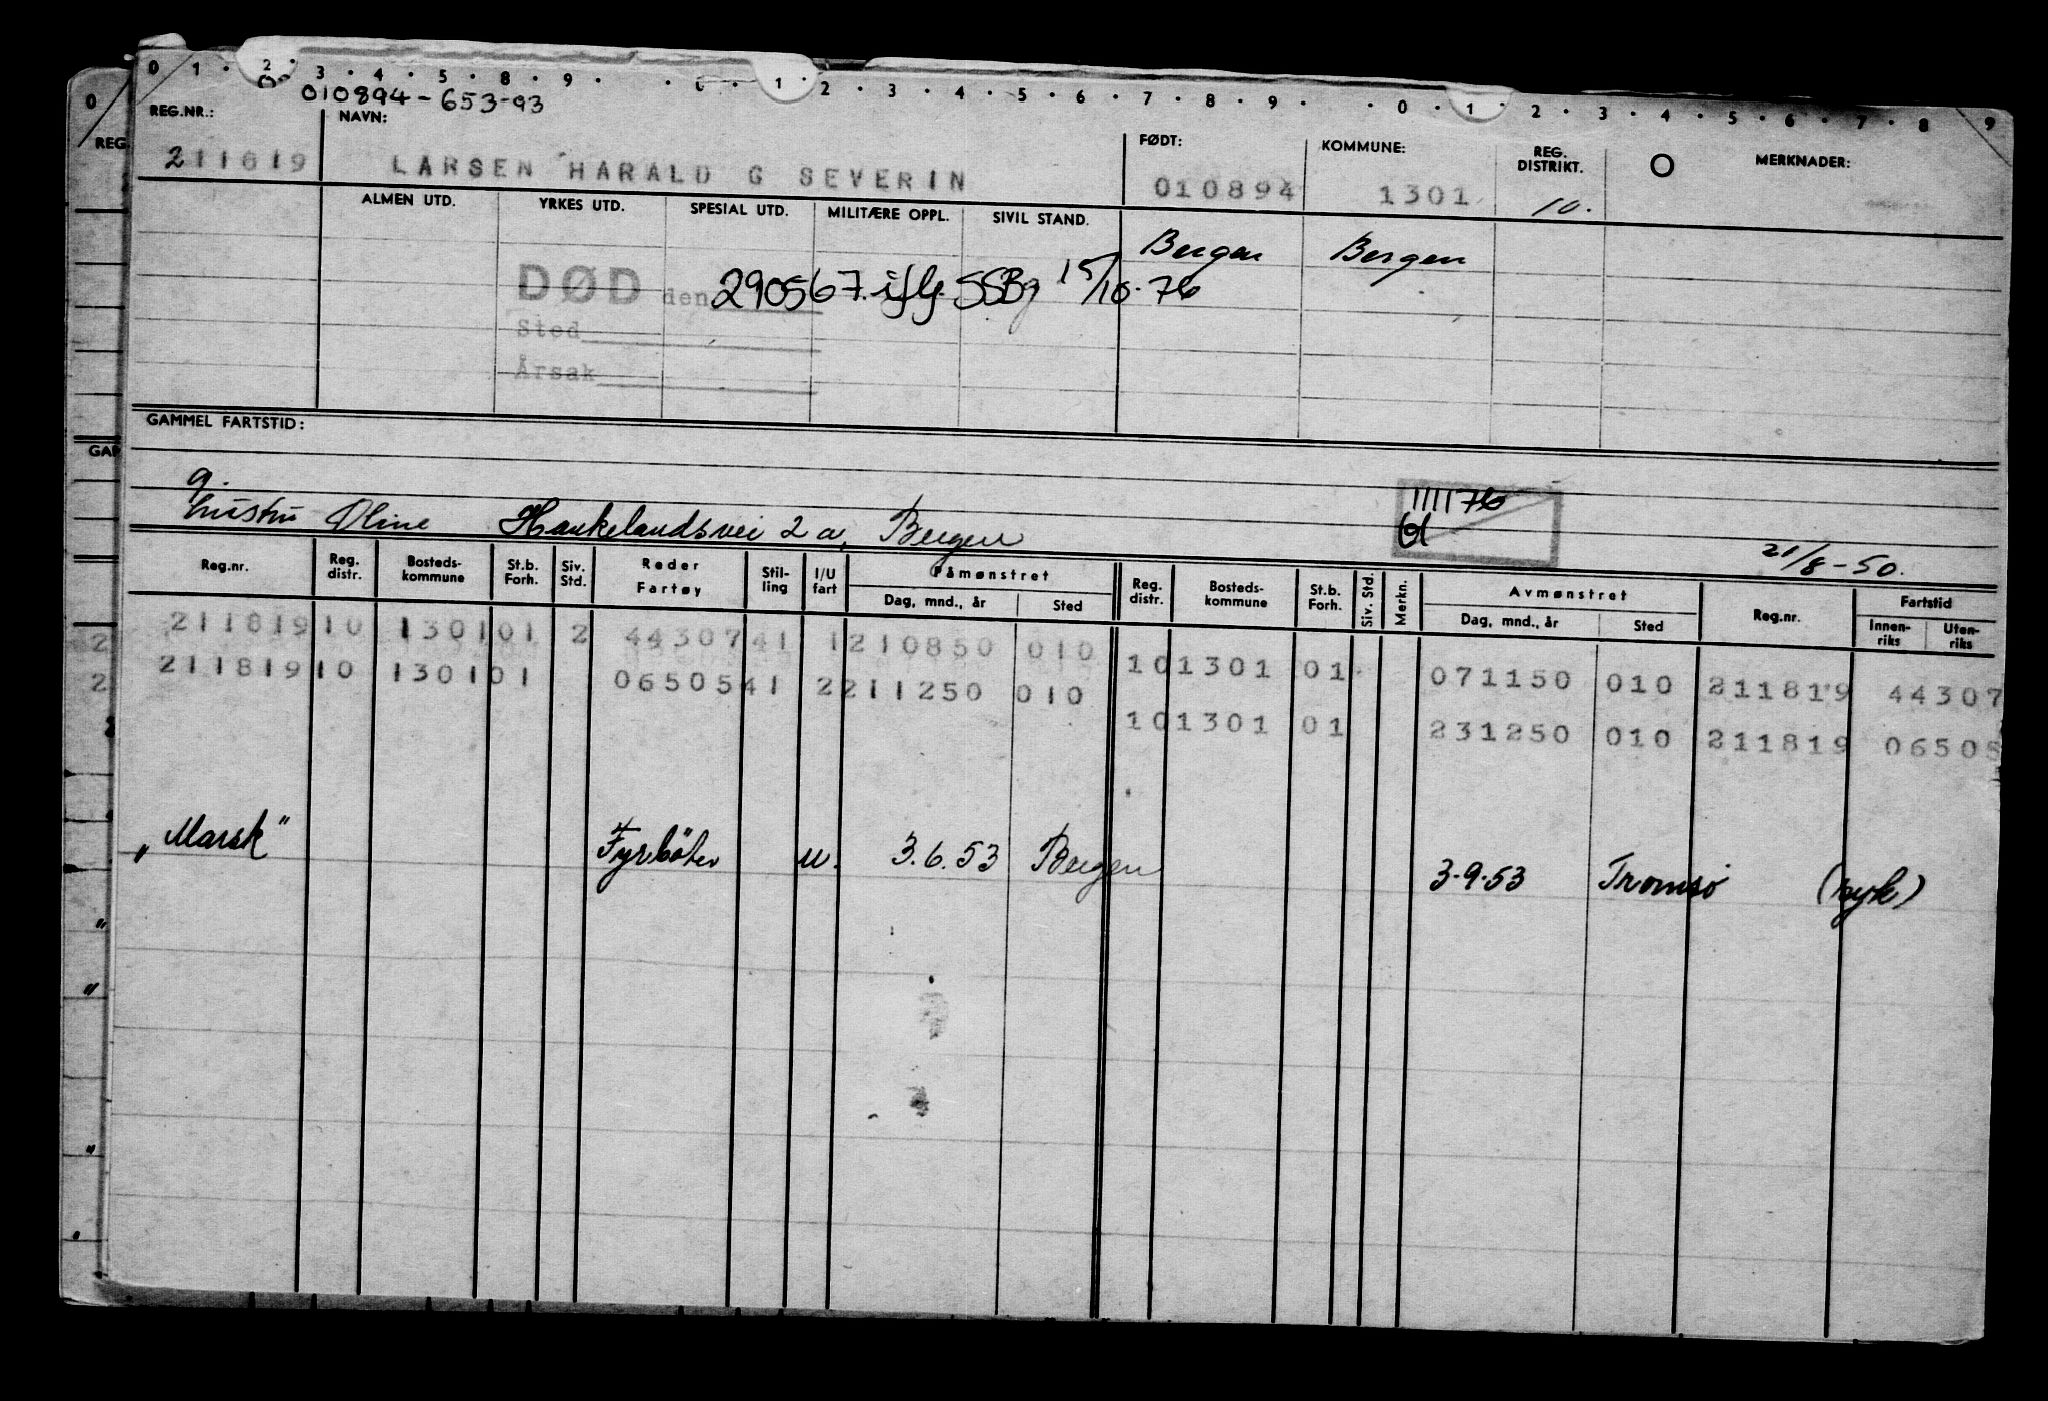 0 1 · 2 · 3 · 4 · 5 · 8 · 9 · 0 · 1 · 2 · 3 · 4 · 5 · 6 · 7 · 8 · 9 · · 0 · 1 · 2 · 3 · 4 · 5 · 6 · 7 · 8 9
010894-653-93
REG.NR.: NAVN: FØDT: KOMMUNE: REG. DISTRIKT. O MERKNADER:
211819 LARSEN HARALD G SEVERIN 010894 1301 10.
ALMEN UTD. YRKES UTD. SPESIAL UTD. MILITÆRE OPPL. SIVIL STAND.
Bergen Bergen
DØD den 290567. iflg. SSBg 15/10-76
Sted
Årsak
GAMMEL FARTSTID:
g.
hustru Oline Haukelandsvei 2 a, Bergen
111176
21/8-50.
Reg.nr. Reg. distr. Bosteds-kommune St.b. Forh. Siv. Std. Reder Fartøy Stil-ling I/U fart Påmønstret Dag, mnd., år Sted Reg. distr. Bosteds-kommune St.b. Forh. Siv. Std. Merkn. Avmønstret Dag, mnd., år Sted Reg.nr. Fartstid Innen-riks Uten-riks
211819 10 1301 01 2 44307 41 1 210850 010
10 1301 01 071150 010 211819 44307
211819 10 1301 01 06505 41 2 211250 010
10 1301 01 231250 010 211819 06505
„Marsk" Fyrböter u. 3.6.53 Bergen 3.9.53 Tromsø (syk)